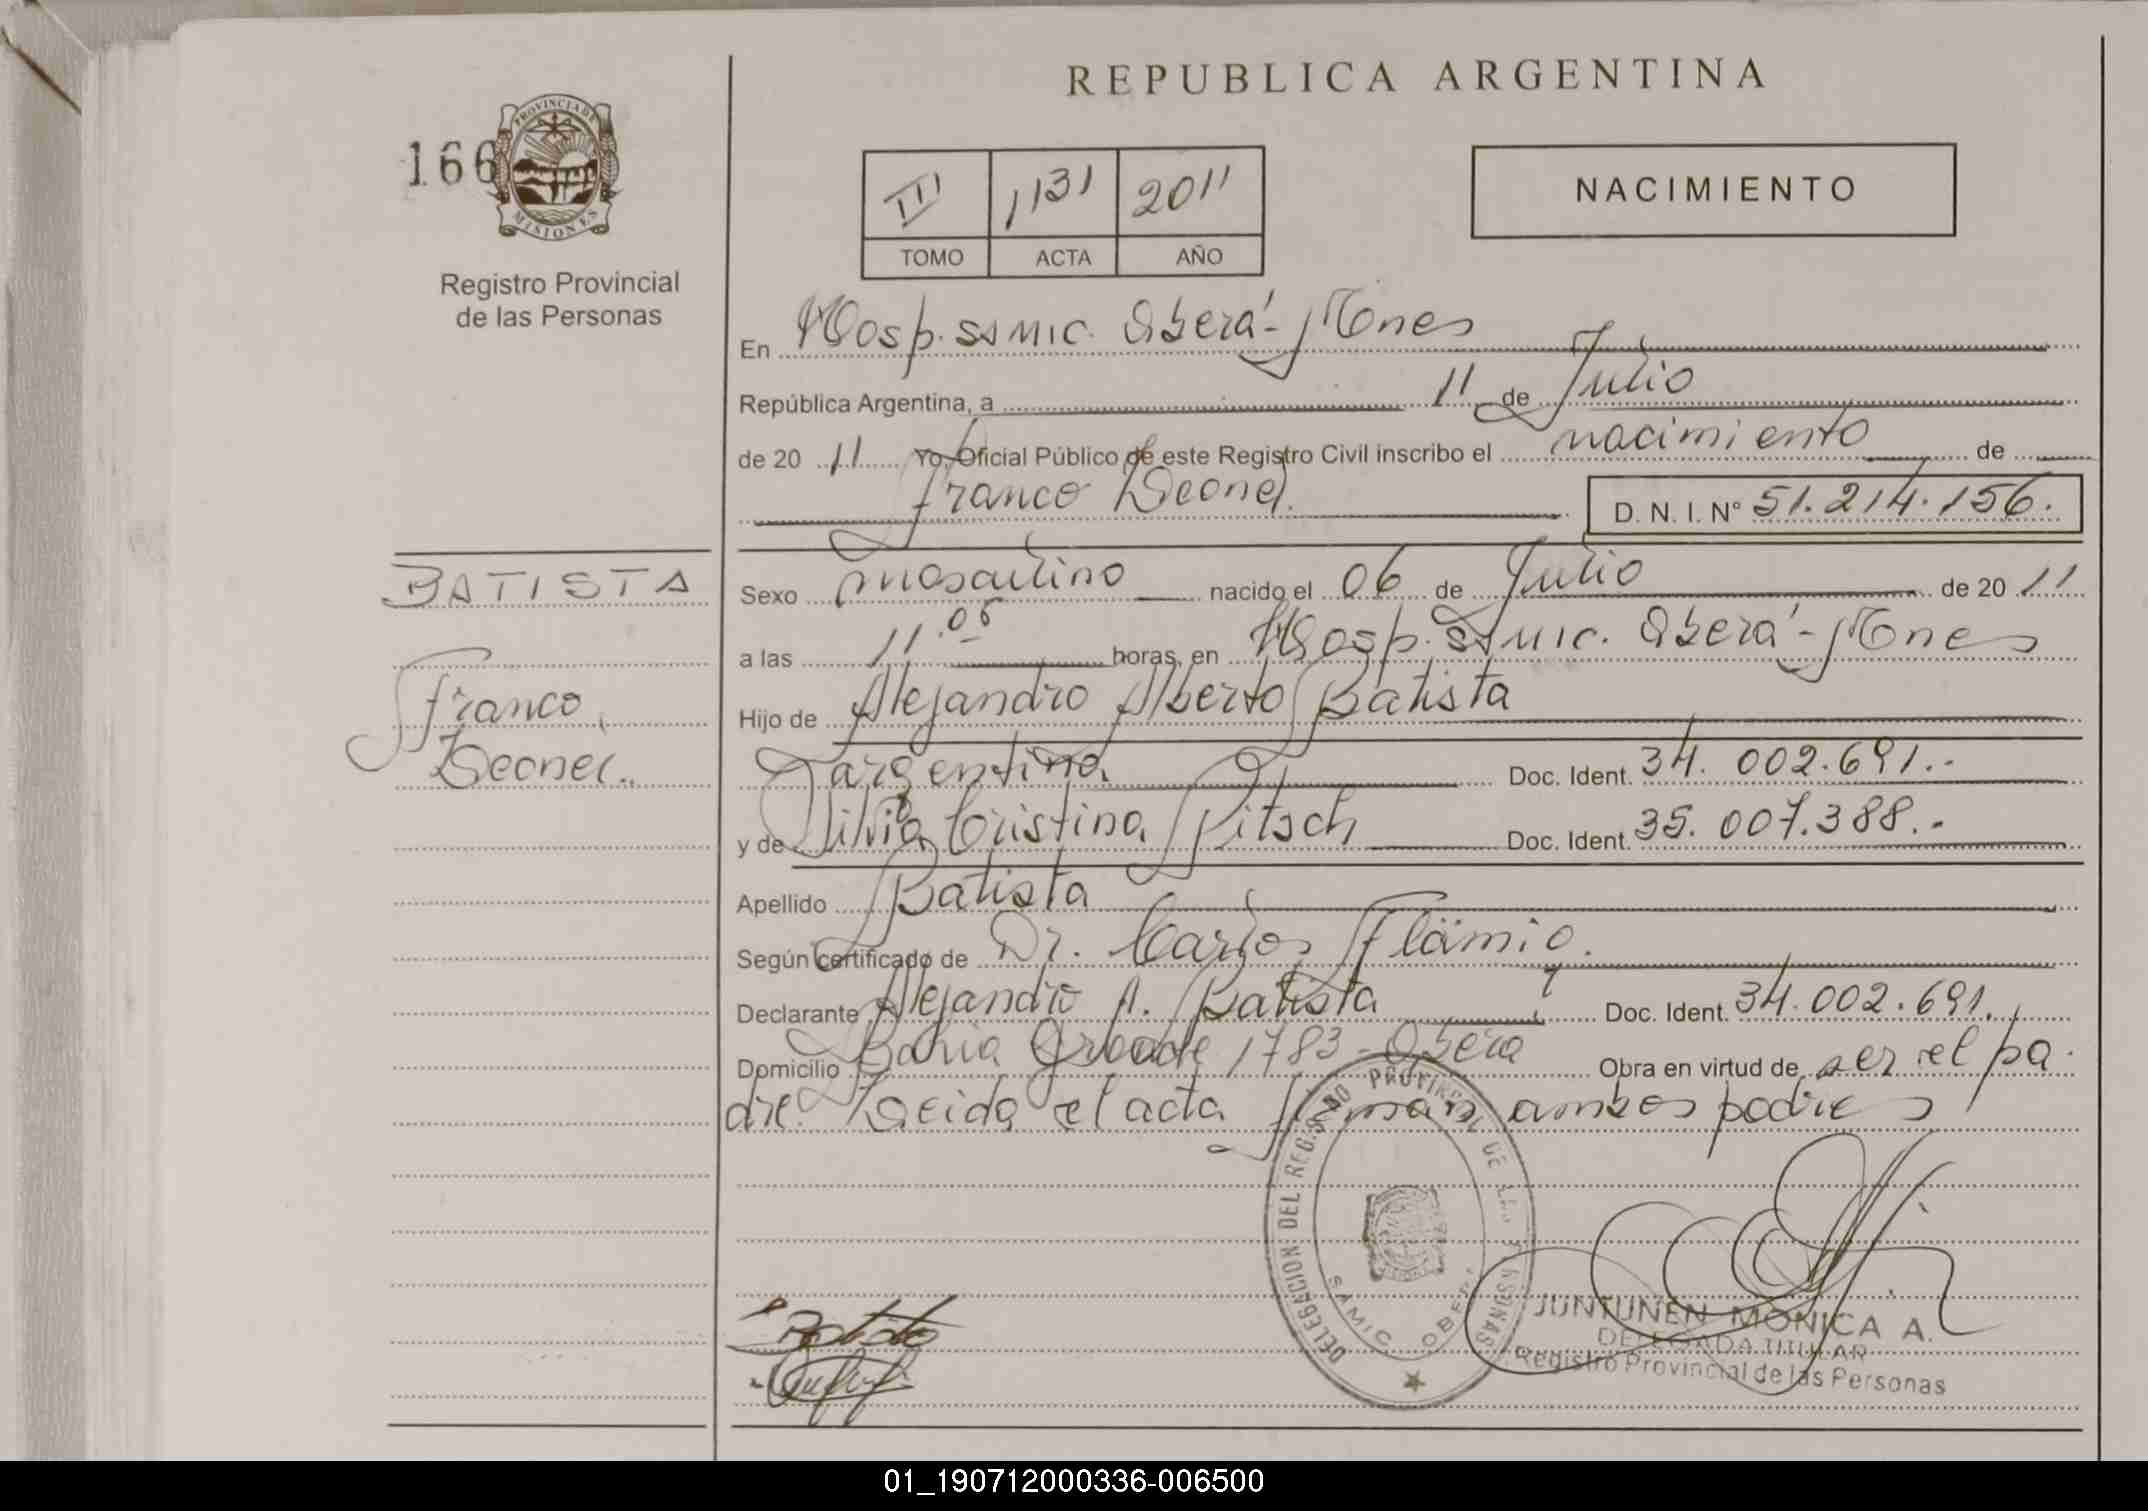 REPUBLICA ARGENTINA
166
PROVINCIA DE
MISIONES
Registro Provincial
de las Personas
III 1131 2011
TOMO ACTA AÑO
NACIMIENTO
En Hosp. SAMIC. Oberá - Mnes
República Argentina, a 11 de Julio
de 20 11 Yo, Oficial Público de este Registro Civil inscribo el nacimiento de
Franco Leonel.
D. N. I. Nº 51.214.156.
BATISTA
Franco
Leonel.
Sexo masculino nacido el 06 de Julio de 20 11
a las 11.05 horas, en Hosp. SAMIC. Oberá - Mnes
Hijo de Alejandro Alberto Batista
argentina Doc. Ident. 34. 002.691.-
y de Silvia Cristina Pitsch Doc. Ident. 35. 007.388.-
Apellido Batista
Según certificado de Dr. Carlos Flämig.
Declarante Alejandro A. Batista Doc. Ident. 34.002.691.
Domicilio Bahia Grande 1783 - Obera Obra en virtud de ser el pa-
dre. Leida el acta firman ambos padres
DELEGACION DEL REGISTRO PROVINCIAL DE LAS PERSONAS
SAMIC OBERA
Batista
JUNTUNEN MONICA A.
DELEGADA TITULAR
Registro Provincial de las Personas
01_190712000336-006500